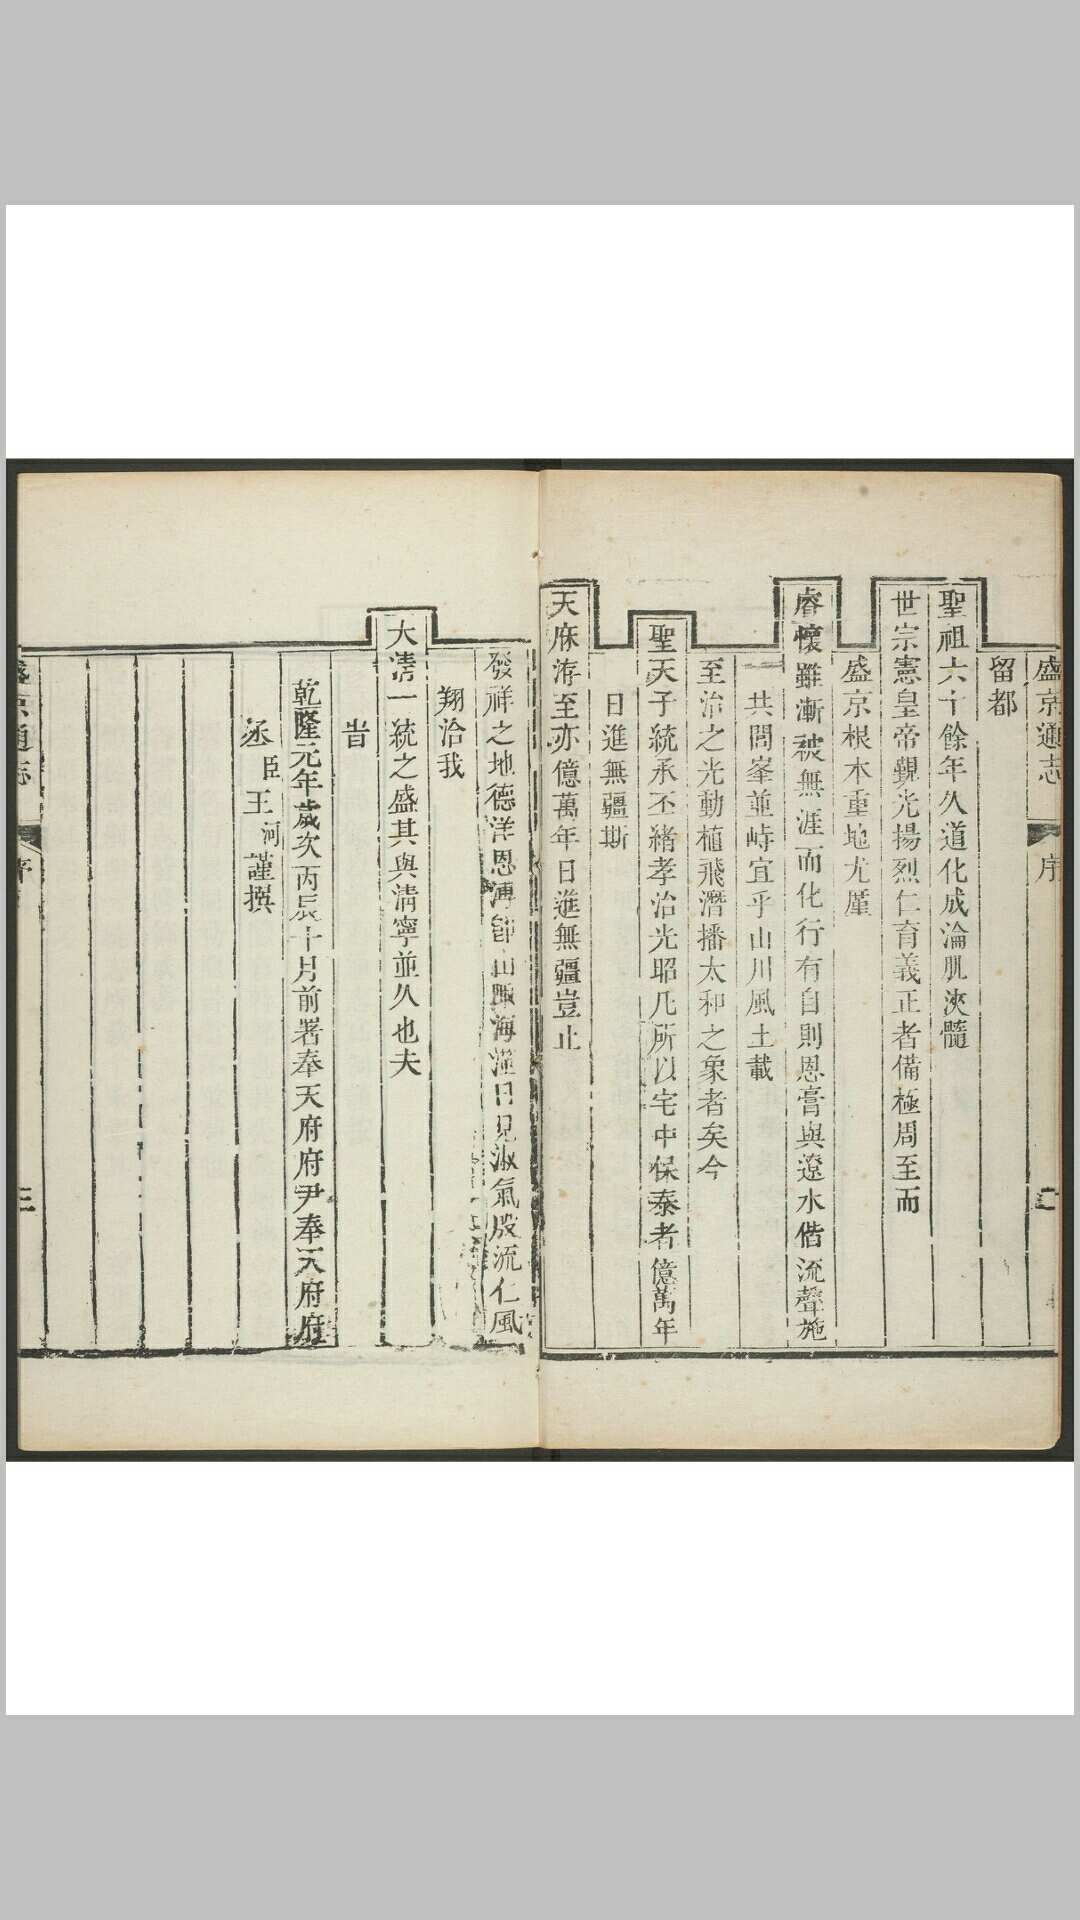 盛京通志
序
二
留都
聖祖六十餘年久道化成淪肌浹髓
世宗憲皇帝覲光揚烈仁育義正者備極周至而
盛京根本重地尤厪
睿懷雖漸被無涯而化行有自則恩膏與遼水偕流聲施
共閭峯並峙宜乎山川風土載
至治之光動植飛潛播太和之象者矣今
聖天子統承丕緒孝治光昭凡所以宅中保泰者億萬年
日進無疆斯
天庥洊至亦億萬年日進無疆豈止
發祥之地德洋恩溥山陬海澨日見淑氣殷流仁風
翔洽我
大清一統之盛其與清寧並久也夫
旹
乾隆元年歲次丙辰十月前署奉天府府尹奉天府府
丞臣王河謹撰
盛京通志
序
三